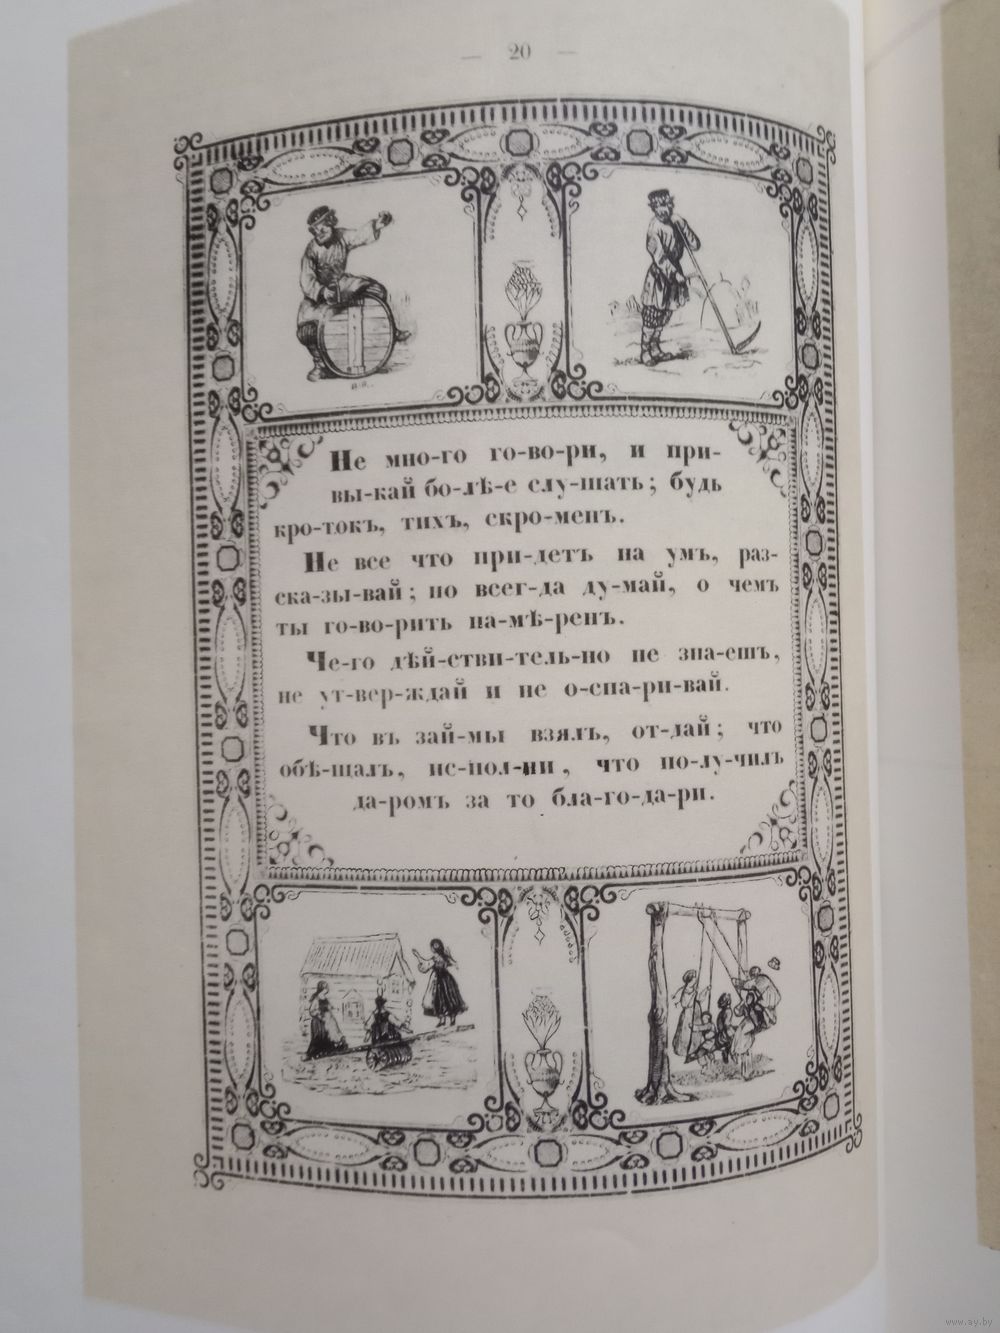 — 20 —
Не мно-го го-во-ри, и при-
вы-кай бо-лѣ-е слу-шать; будь
кро-токъ, тихъ, скро-менъ.
Не все что при-детъ на умъ, раз-
ска-зы-вай; но всег-да ду-май, о чемъ
ты го-во-рить на-мѣ-ренъ.
Че-го дѣй-стви-тель-но не зна-ешь,
не ут-вер-ждай и не о-спа-ри-вай.
Что въ зай-мы взялъ, от-дай; что
обѣ-щалъ, ис-пол-ни, что по-лу-чилъ
да-ромъ за то бла-го-да-ри.
www.ay.by